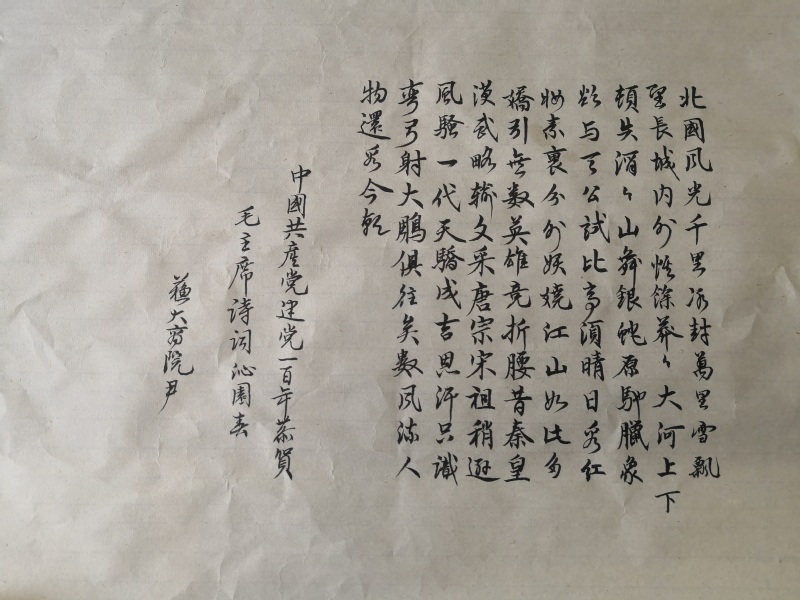 北國风光千里冰封萬里雪飄
望長城内外惟餘莽々大河上下
頓失滔々山舞銀蛇原馳臘象
欲与天公試比高須晴日看红
妝素裹分外妖嬈江山如此多
嬌引無数英雄竞折腰昔秦皇
漢武略輸文采唐宗宋祖稍遜
风騷一代天驕成吉思汗只識
彎弓射大鵰俱往矣数风流人
物還看今朝
中國共產党建党一百年恭賀
毛主席詩词沁園春
蘇大商院尹